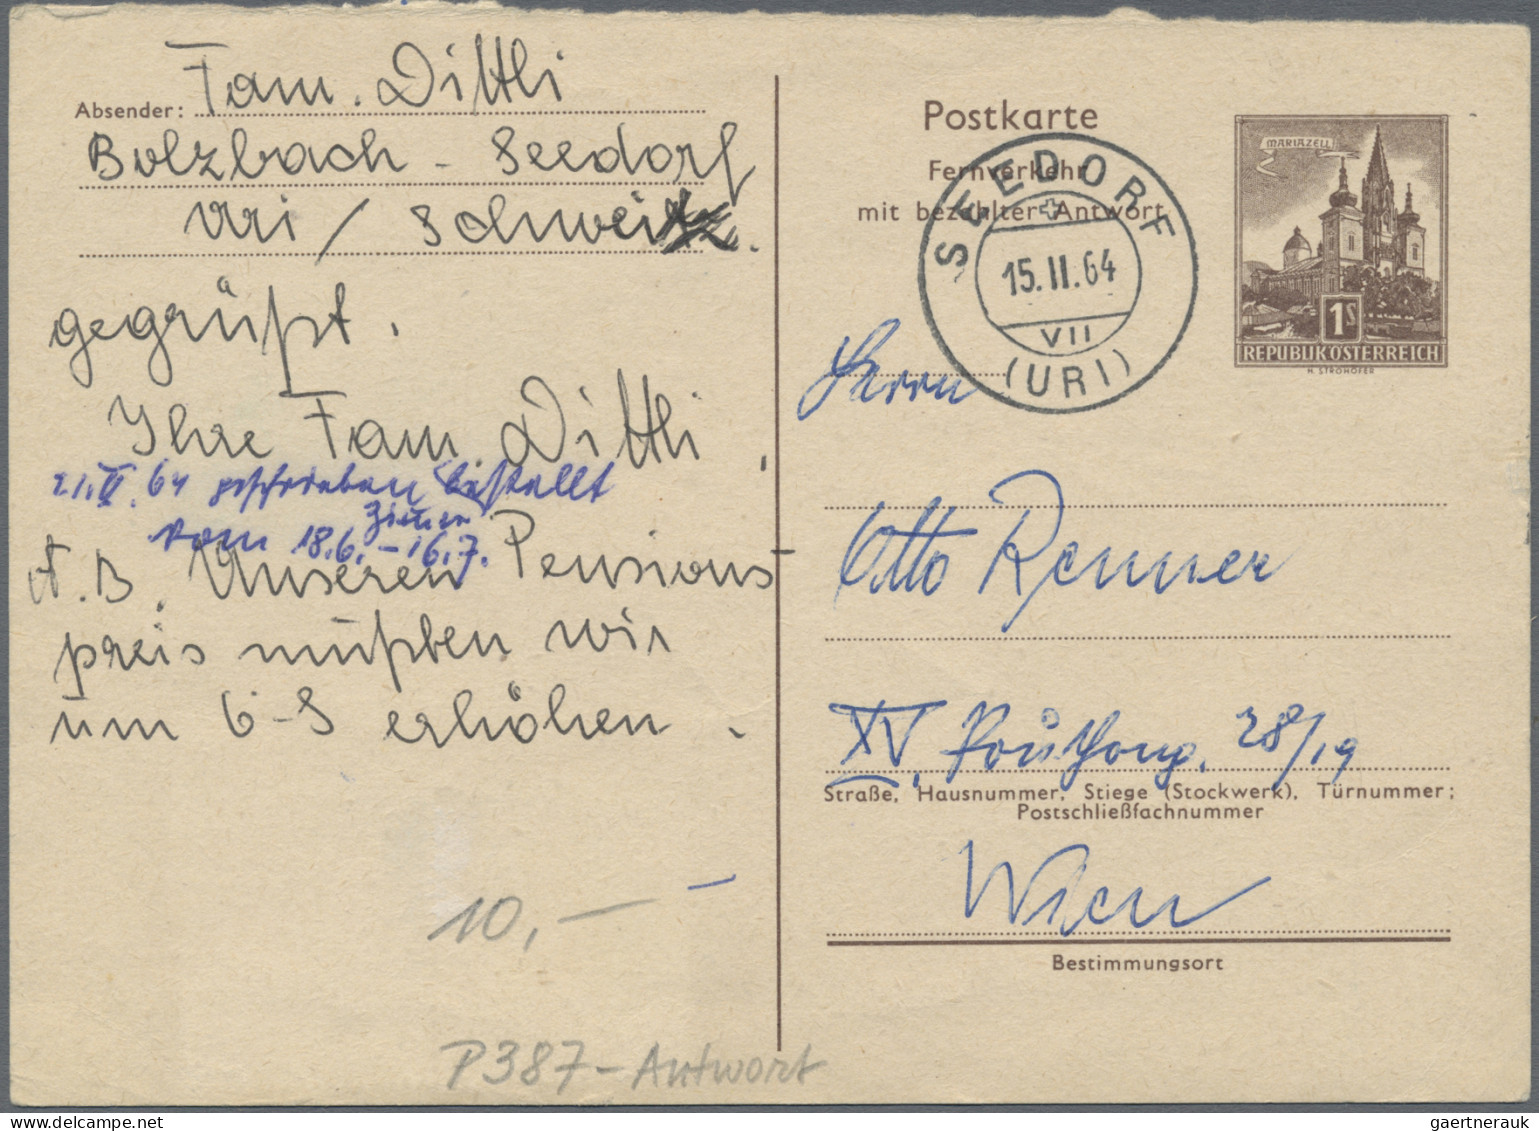 Absender: Fam. Dittli
Bolzbach - Seedorf
Uri / Schweiz.
gegrüßt.
Ihre Fam. Dittli.
21.II.64 geschrieben bestellt
Zimmer
vom 18.6.-16.7.
N.B. Unseren Pensions-
preis müßben wir
um 6-S erhöhen.
10,-
P387-Antwort
Postkarte
Fernverkehr
mit bezahlter Antwort
MARIAZELL
1S
REPUBLIK ÖSTERREICH
H. STROHOFER
SEEDORF
15.II.64
VII
(URI)
Herrn
Otto Renner
XV, 28/19
Straße, Hausnummer, Stiege (Stockwerk), Türnummer;
Postschließfachnummer
Wien
Bestimmungsort
gaertnerauk@delcampe.net